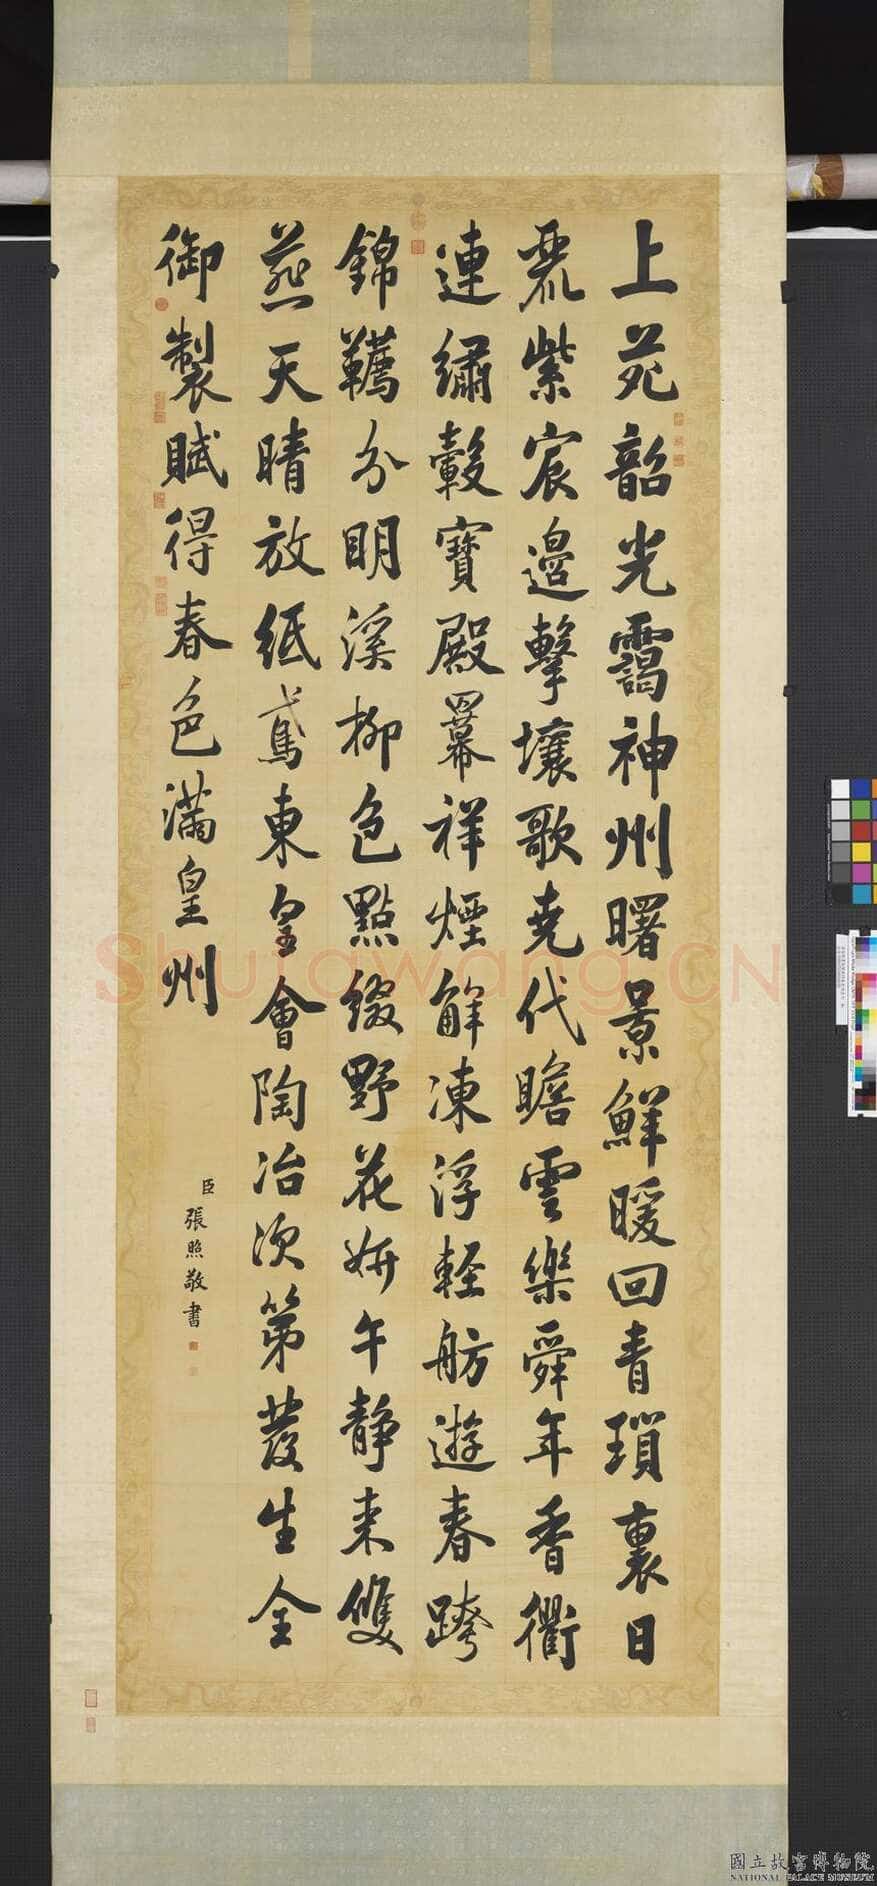 上苑韶光靄神州曙景鮮暖回青瑣裏日
麗紫宸邊擊壤歌堯代瞻雲樂舜年香衢
連繡轂寶殿羃祥煙解凍浮輕舫遊春跨
錦韉分明溪柳色點綴野花妍午靜来雙
燕天晴放紙鳶東皇會陶冶次第發生全
御製賦得春色滿皇州
臣張照敬書
Shufawang.CN
國立故宮博物院
NATIONAL PALACE MUSEUM